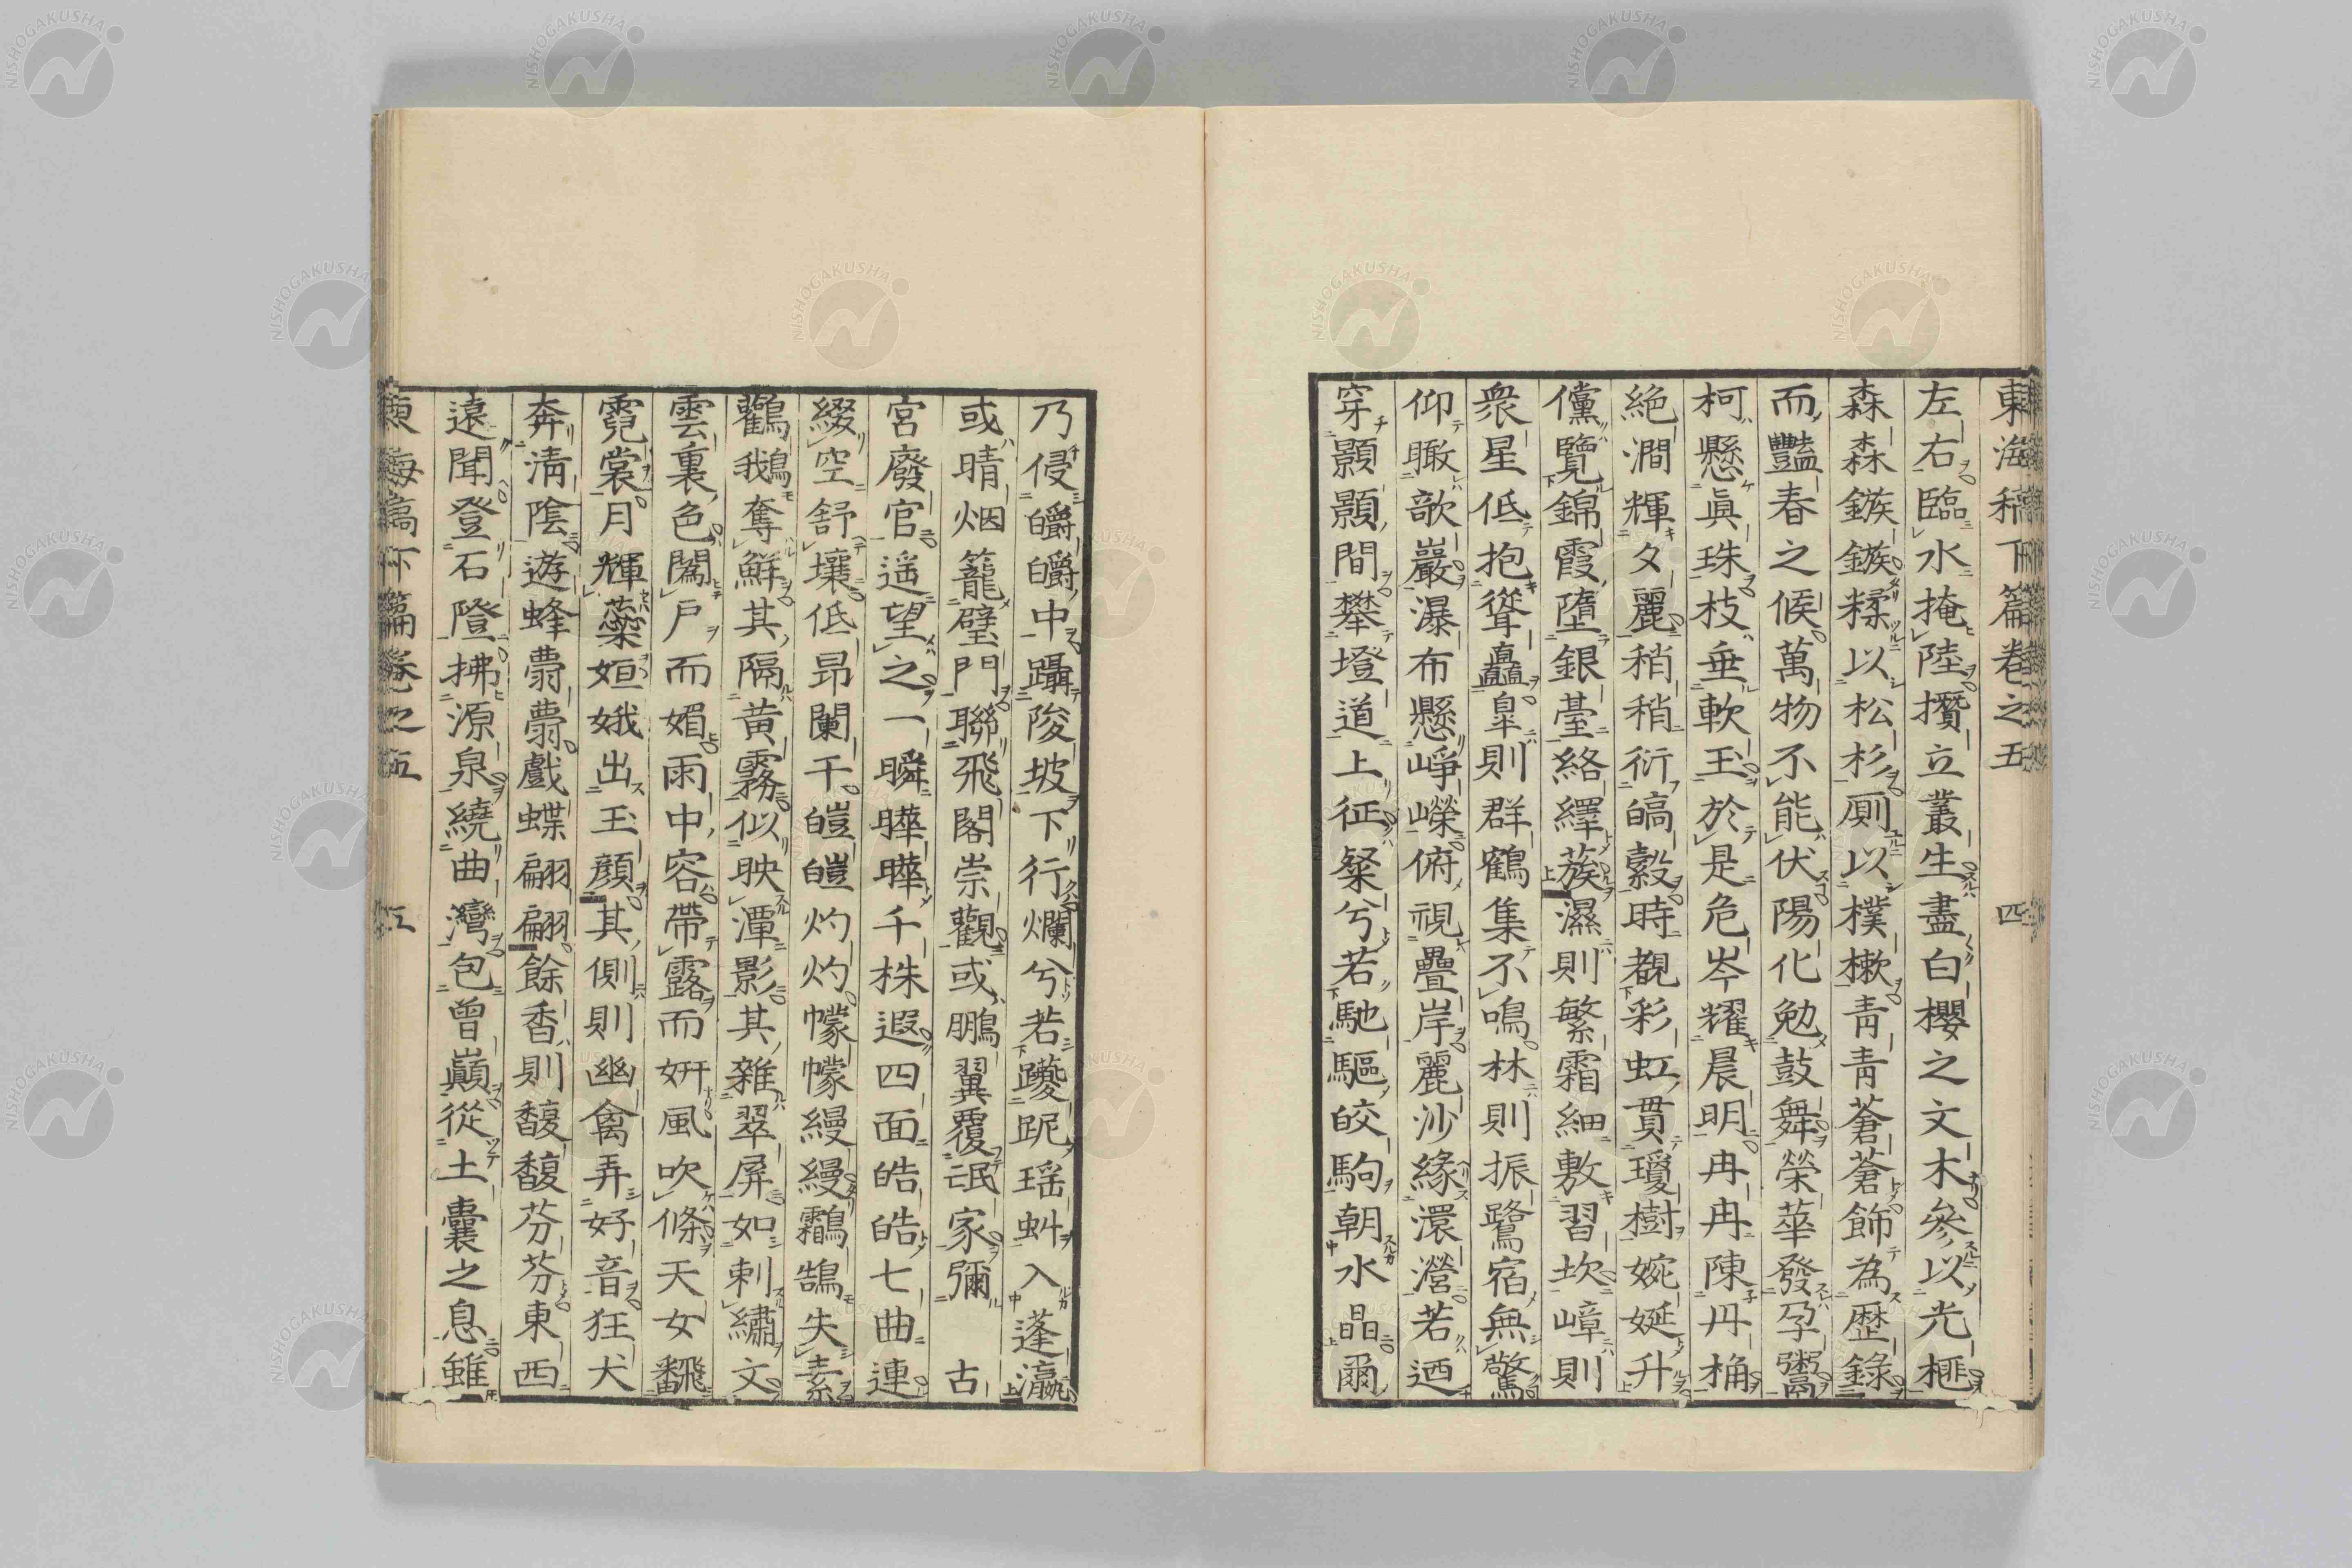 東海稿下篇卷之五 四
左右臨水掩陸攢立叢生盡白櫻之文木參以光榧
森森鏃鏃糅以松杉厠以樸樕青青蒼蒼飾為歴錄
而豔春之候萬物不能伏陽化勉鼓舞榮華發孕鬻
柯懸眞珠枝垂軟玉於是危岑耀晨明冉冉陳丹桷
絶澗輝夕麗稍稍衍皜縠時覩彩虹貫瓊樹婉娫升
儻覽錦霞墮銀臺絡繹蔟濕則繁霜細敷習坎嶂則
衆星低抱聳矗皐則群鶴集不鳴林則振鷺宿無驚
仰瞰歆巖瀑布懸崢嶸俯視疊岸麗沙緣澴瀯若迺
穿顥顥間攀墱道上征粲兮若馳驅皎駒朝水晶爾
乃侵皭皭中躡陖坡下行爛兮若躨跜瑶虯入蓬瀛
或晴烟籠璧門聯飛閣崇觀或鵬翼覆氓家彌 古
宮廢官遥望之一瞬曄曄千株遐四面皓皓七曲連
綴空舒壤低昂闌干皚皚灼灼幪幪縵縵鸘鵠失素
鸛鵝奪鮮其隔黄霧似映潭影其雜翠屏如刺繡文
雲裏色闔戶而媚雨中容帶露而姸風吹條天女飜
霓裳月輝蘂姮娥出玉顔其側則幽禽弄好音狂犬
奔淸陰遊蜂翥翥戲蝶翩翩餘香則馥馥芬芬東西
遠聞登石隥拂源泉繞曲灣包曾巓從土囊之息雖
東海稿下篇卷之五 五
NISHOGAKUSHA